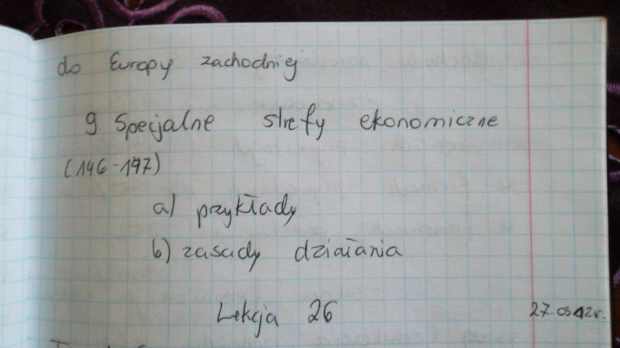 do Europy zachodniej
9 Specjalne strefy ekonomiczne
(146-147)
a) przykłady
b) zasady działania
Lekcja 26 27 03 12 r.